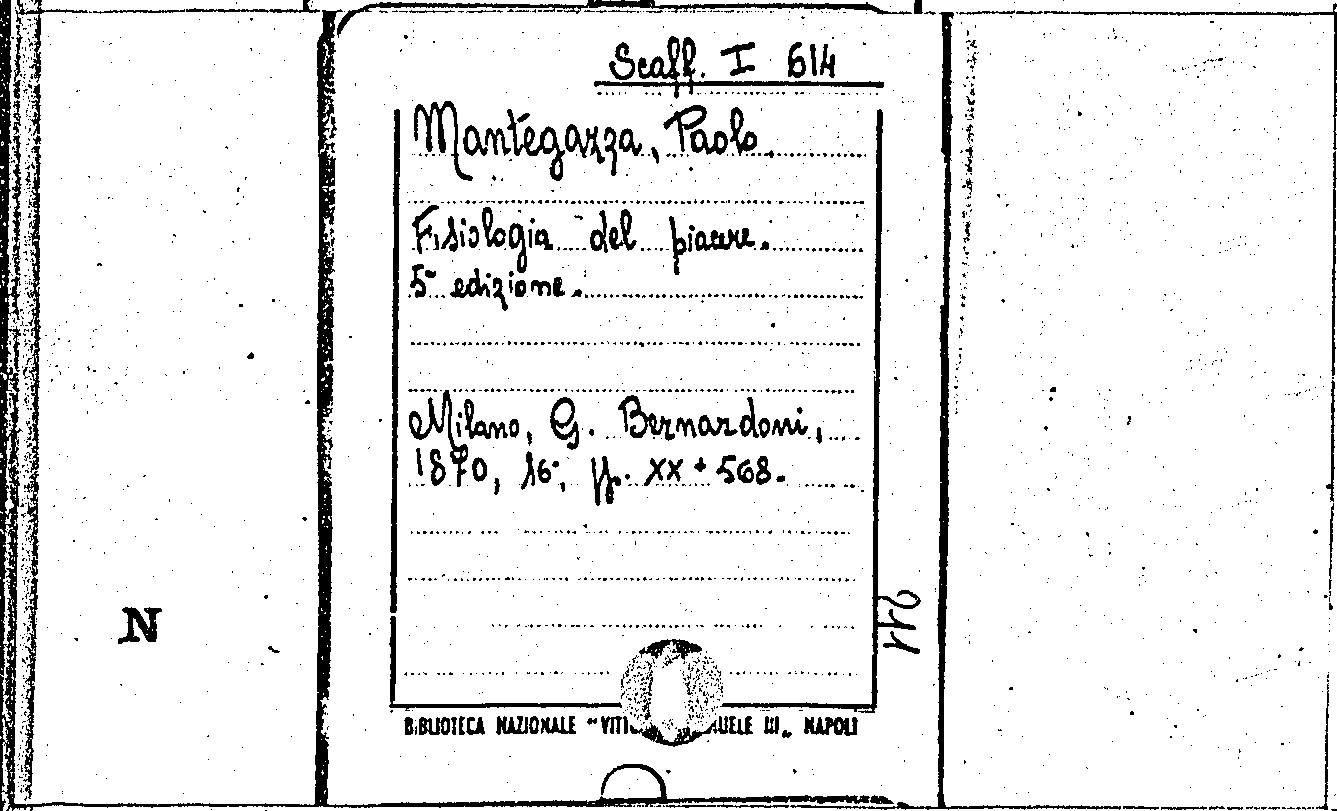 Scaff. I 614
Mantegazza, Paolo.
Fisiologia del piacere.
5ª edizione.
Milano, G. Bernardoni,
1870, 16°, pp. XX + 568.
N
BIBLIOTECA NAZIONALE "VITT UELE III„ NAPOLI